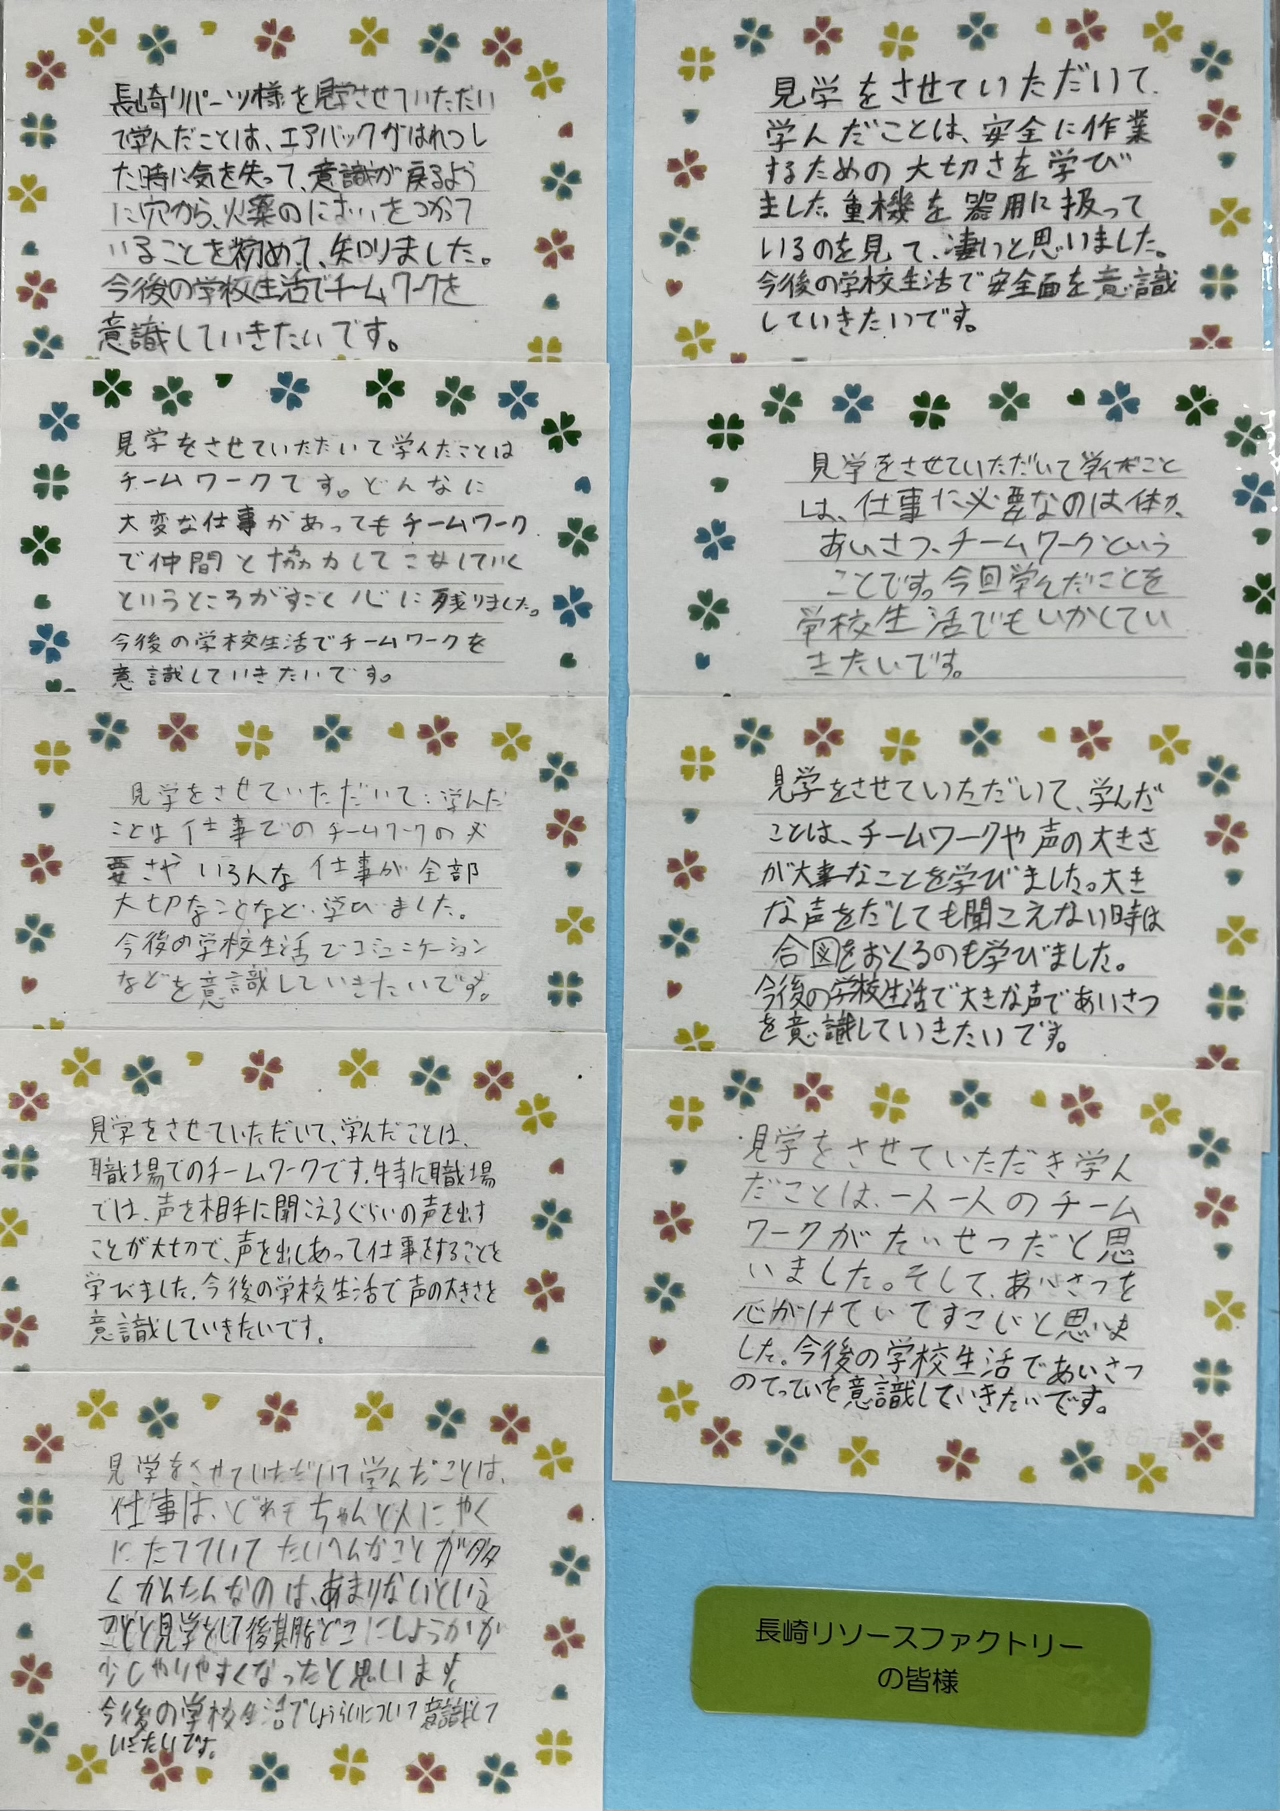 長崎リパーツ様を見学させていただい
て学んだことは、エアバックがはれつし
た時に気を失って、意識が戻るよう
に穴から、火薬のにおいをつけて
いることを初めて、知りました。
今後の学校生活でチームワークを
意識していきたいです。
見学をさせていただいて学んだことは
チームワークです。どんなに
大変な仕事があってもチームワーク
で仲間と協力してこなしていく
というところがすごく心に残りました。
今後の学校生活でチームワークを
意識していきたいです。
見学をさせていただいて、学んだ
ことは仕事でのチームワークの必
要さやいろんな仕事が全部
大切なことなど、学びました。
今後の学校生活でコミュニケーション
などを意識していきたいです。
見学をさせていただいて、学んだことは、
職場でのチームワークです。特に職場
では、声を相手に聞こえるぐらいの声を出す
ことが大切で、声を出しあって仕事をすることを
学びました。今後の学校生活で声の大きさを
意識していきたいです。
見学をさせていただいて学んだことは、
仕事は、どれもちゃんと人にやく
にたてていてたいへんなことが多
くかんたんなのは、あまりないという
見学をして後期をどこにしようかが
少しやりやすくなったと思います
今後の学校生活でしょうらいについて意識して
いきたいです。
見学をさせていただいて、
学んだことは、安全に作業
するための大切さを学び
ました。重機を器用に扱って
いるのを見て、凄いと思いました。
今後の学校生活で安全面を意識
していきたいです。
見学をさせていただいて学んだこと
は、仕事に必要なのは体力、
あいさつ、チームワークという
ことです。今回学んだことを
学校生活でもいかしてい
きたいです。
見学をさせていただいて、学んだ
ことは、チームワークや声の大きさ
が大事なことを学びました。大き
な声をだしても聞こえない時は
合図をおくるのも学びました。
今後の学校生活で大きな声であいさつ
を意識していきたいです。
見学をさせていただき学ん
だことは、一人一人のチーム
ワークがたいせつだと思
いました。そして、あいさつを
心がけていてすごいと思いま
した。今後の学校生活であいさつ
のてっていを意識していきたいです。
長崎リソースファクトリー
の皆様